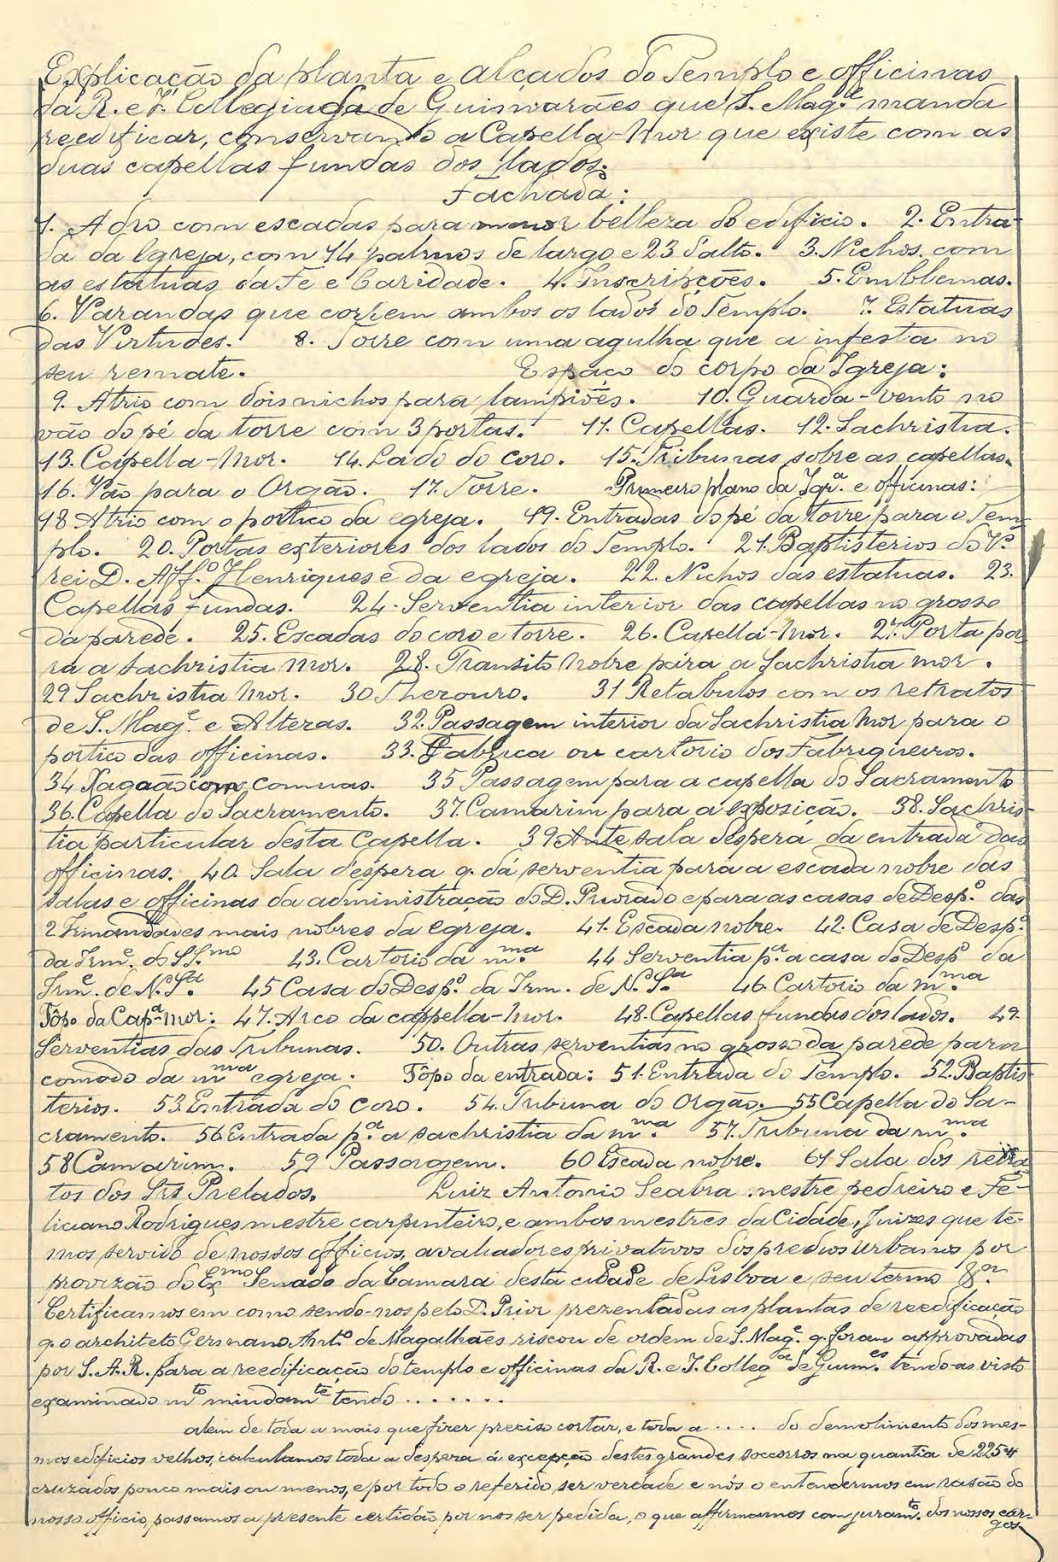 Explicação da planta e alçados do Templo e officinas
da R. e I. Collegiada de Guimarães que S. Mag.e manda
reedificar, conservando a Capella-Mor que existe com as
duas capellas fundas dos lados.
Fachada:
1. Adro com escadas para menor belleza do edificio. 2. Entra-
da da Igreja, com 14 palmos de largo e 23 d'alto. 3. Nichos com
as estatuas da Fe e Caridade. 4. Inscripções. 5. Emblemas.
6. Varandas que correm ambos os lados do Templo. 7. Estatuas
das Virtudes. 8. Torre com uma agulha que a infesta no
seu remate. Espaço do corpo da Igreja:
9. Atrio com dois nichos para lampiões. 10. Guarda-vento no
vão do pé da torre com 3 portas. 11. Capellas. 12. Sachristia.
13. Capella-Mor. 14. Lado do coro. 15. Tribunas sobre as capellas.
16. Vão para o Orgão. 17. Torre. Primeiro plano da Igr.a e officinas:
18 Atrio com o portico da egreja. 19. Entradas do pé da torre para o Tem-
plo. 20. Portas exteriores dos lados do Templo. 21. Baptisterios do V.e
rei D. Aff.o Henriques e da egreja. 22. Nichos das estatuas. 23.
Capellas fundas. 24. Serventia interior das capellas no grosso
da parede. 25. Escadas do coro e torre. 26. Capella-Mor. 27. Porta pa-
ra a Sachristia Mor. 28. Transito Nobre para a Sachristia mor.
29 Sachristia Mor. 30 Thezouro. 31 Retabulos com os retratos
de S. Mag.e e Altezas. 32. Passagem interior da Sachristia Mor para o
portico das officinas. 33. Fabrica ou cartorio dos Fabriqueiros.
34 Xagoão com comuas. 35 Passagem para a capella do Sacramento
36. Capella do Sacramento. 37. Camarim para a exposição. 38. Sachris-
tia particular desta Capella. 39 Ante sala d'espera da entrada das
officinas. 40. Sala d'espera q. dá serventia para a escada nobre das
salas e officinas da administração do D. Priorado e para as casas de Desp.o das
2 Irmandades mais nobres da egreja. 41. Escada nobre. 42. Casa de Desp.o
da Irm.e do SS.mo 43. Cartorio da m.ma 44 Serventia p.a a casa do Desp.o da
Irm.e de N. S.ra 45 Casa do Desp.o da Irm. de N. S.ra 46. Cartorio da m.ma
Tôpo da Cap.a-Mor: 47. Arco da cappella-Mor. 48. Capellas fundas dos lados. 49.
Serventias das Tribunas. 50. Outras serventias no grosso da parede para
comodo da m.ma egreja. Tôpo da entrada: 51. Entrada do Templo. 52. Baptis-
terios. 53. Entrada do coro. 54. Tribuna do Orgão. 55 Capella do Sa-
cramento. 56 Entrada p.a a sachristia da m.ma 57. Tribuna da m.ma
58 Camarim. 59 Passagem. 60 Escada nobre. 61. Sala dos retra-
tos dos Srs Prelados. Luiz Antonio Seabra mestre pedreiro e Fe-
liciano Rodrigues mestre carpinteiro, e ambos mestres da Cidade, Juizes que te-
mos servido de nossos officios, avaliadores privativos dos predios urbanos por
provizão do Ex.mo Senado da Camara desta cidade de Lisboa e seu termo
Certificamos em como sendo-nos pelo D. Prior prezentadas as plantas de reedificação
q. o architeto Germano Ant.o de Magalhães riscou de ordem de S. Mag.e q. foram approvadas
por S. A. R. para a reedificação do templo e officinas da R. e I. Colleg.da de Guim.es tendo-as visto
examinado m.to miudam.te tendo . . . . . . .
alem de toda a mais que fizer preciso cortar, e toda a . . . . do demolimento dos mes-
mos edificios velhos, calculamos toda a despeza á excepção destes grandes soccorros na quantia de
cruzados pouco mais ou menos, e por todo o referido, ser verdade e nós o entendermos em rasão do
nosso officio, passamos a presente certidão por nos ser pedida, o que affirmamos com juram.to dos nossos car-
gos.